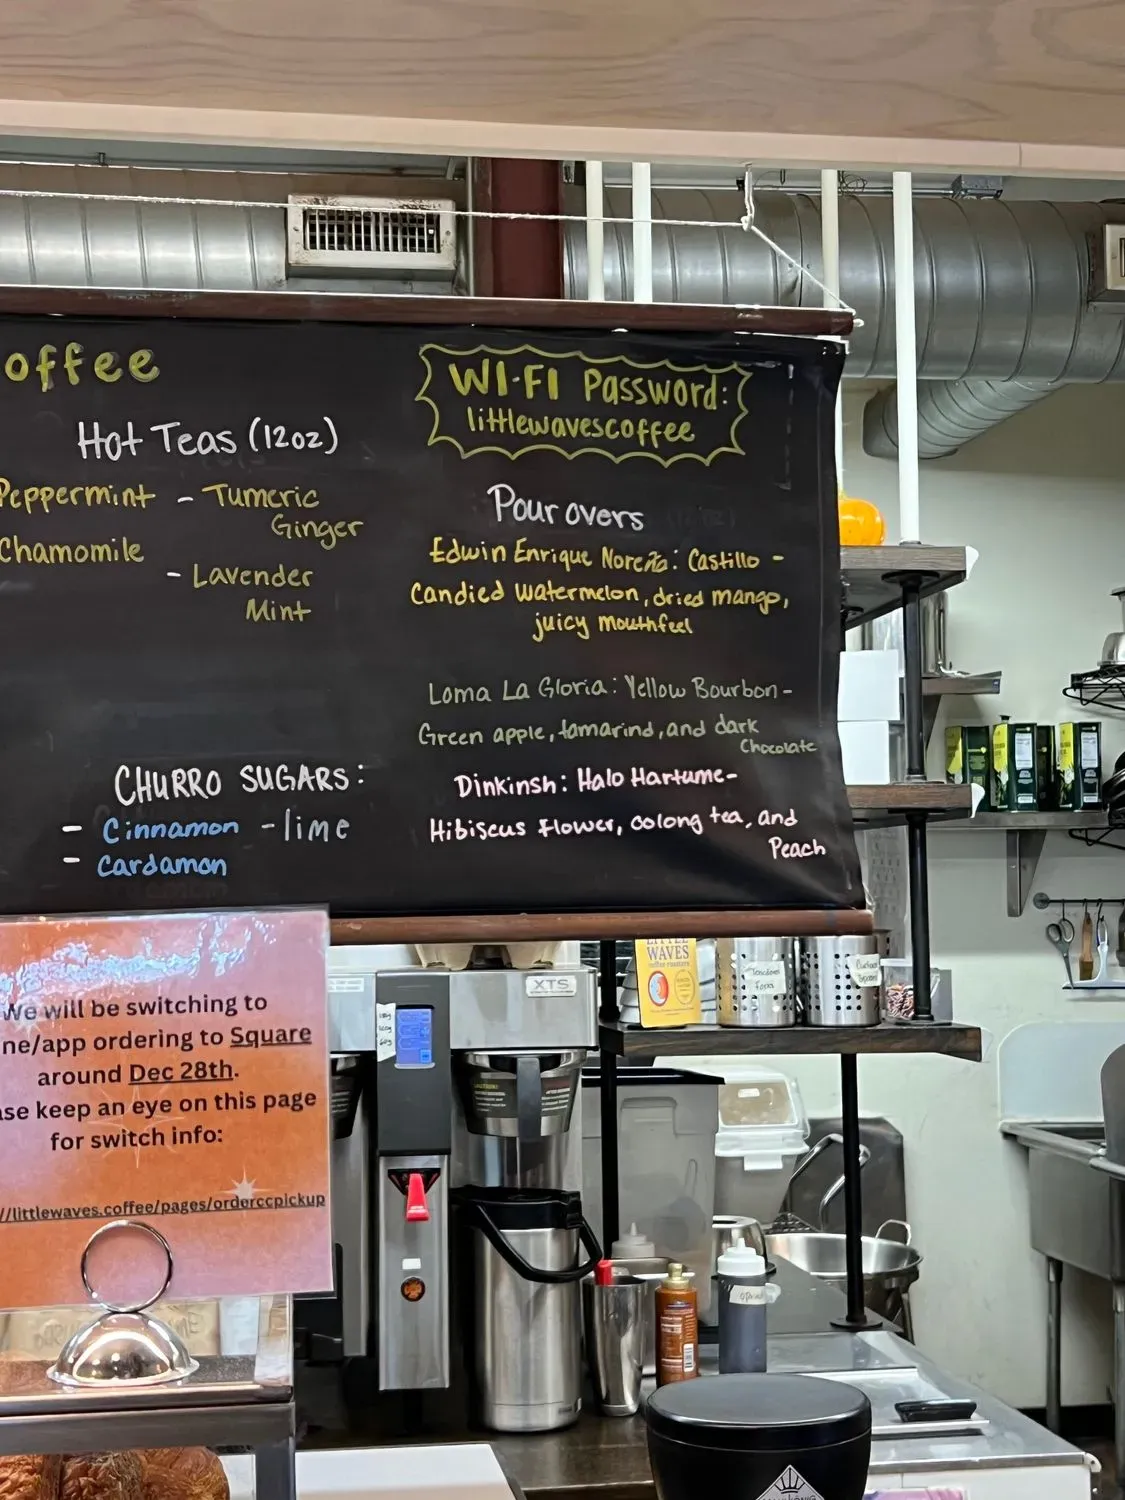 offee
Hot Teas (12oz)
Peppermint - Tumeric
Ginger
Chamomile
- Lavender
Mint
CHURRO SUGARS:
- Cinnamon - lime
- Cardamon
WI-FI Password:
littlewavescoffee
Pour overs
Edwin Enrique Noreña: Castillo -
Candied watermelon, dried mango,
juicy mouthfeel
Loma La Gloria: Yellow Bourbon -
Green apple, tamarind, and dark
Chocolate
Dinkinsh: Halo Hartume -
Hibiscus flower, oolong tea, and
Peach
We will be switching to
ne/app ordering to Square
around Dec 28th.
ase keep an eye on this page
for switch info:
//littlewaves.coffee/pages/orderccpickup
XTS
LITTLE
WAVES
coffee roasters